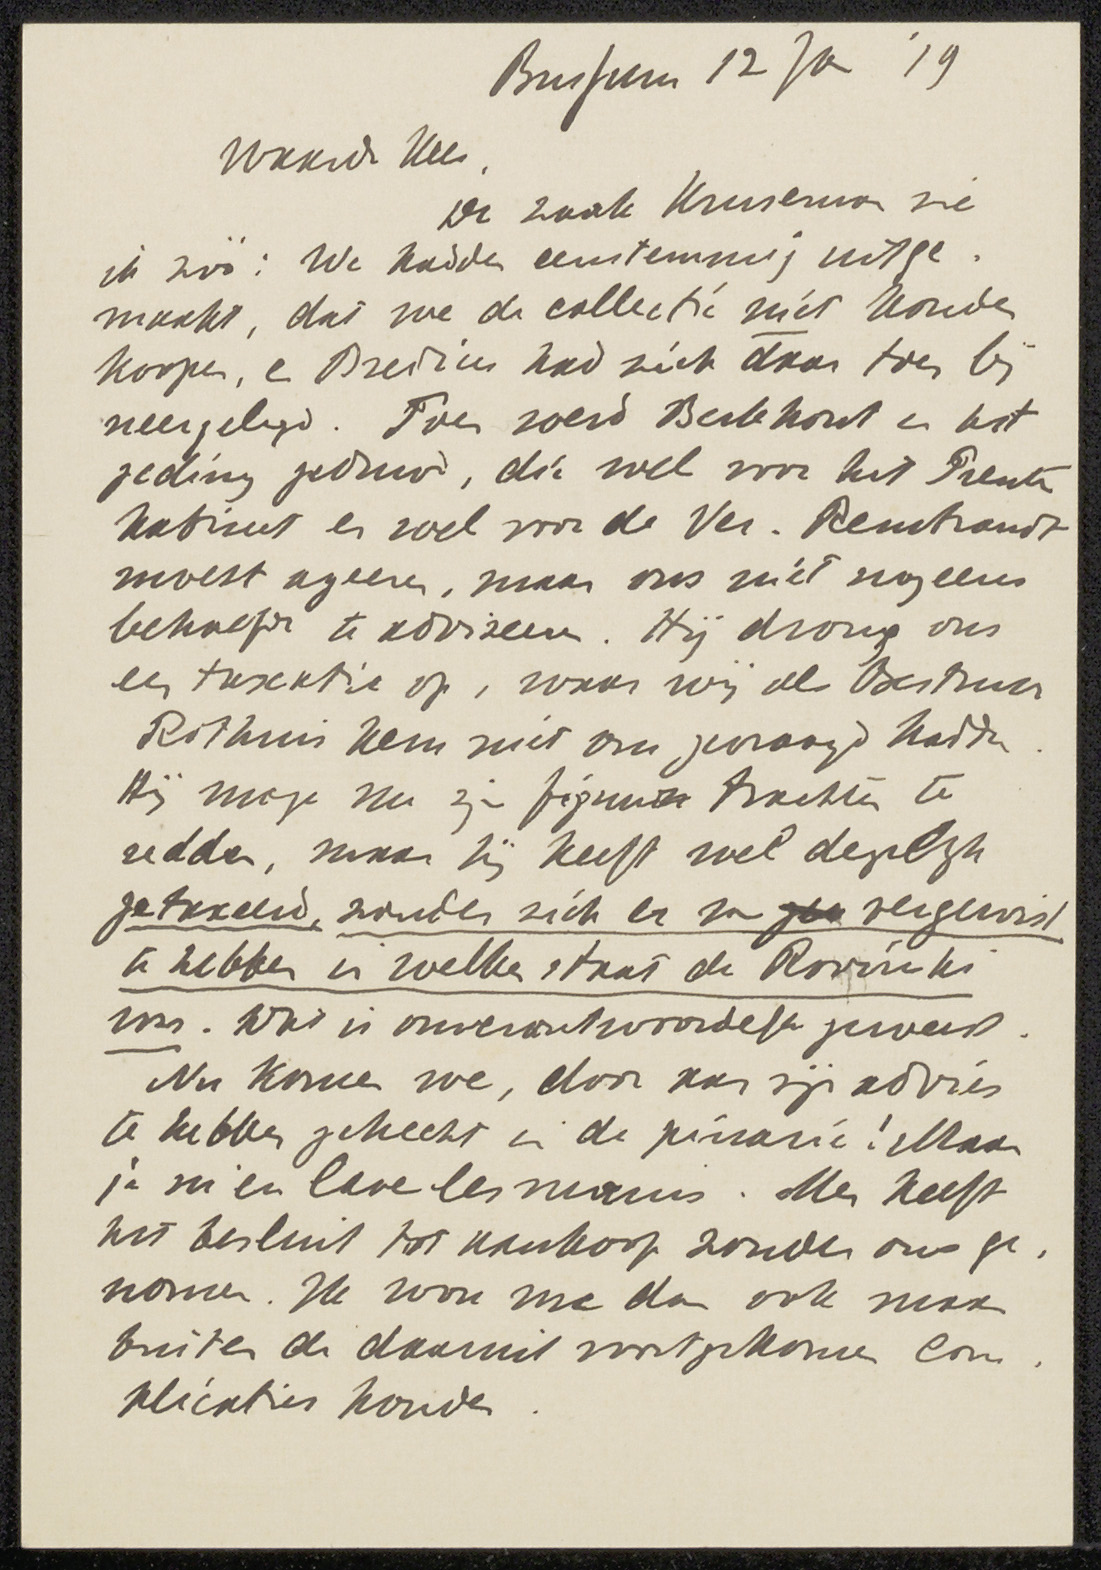 Bussum 12 Jan '19
Waarde Kees,
De zaak Kruseman zie
ik zóó: We hadden eenstemmig uitge-
maakt, dat we de collectie niet konden
koopen, en Bredius had zich daar toen bij
neergelegd. Toen werd Berkhout in het
geding geduwd, die wel voor het Prenten
kabinet en wel voor de Ver. Rembrandt
moest ageeren, maar ons niet nogeens
behoefde te adviseeren. Hij drong ons
een taxatie op, waar wij als Bestuur
Rothuis hem niet om gevraagd hadden.
Hij moge nu zijn figuur trachten te
redden, maar hij heeft wel degelijk
getaxeerd, zonder zich er van vergewist
te hebben in welken staat de Rovinski
was. Dat is onverantwoordelijk geweest.
Nu komen we, door aan zijn advies
te hebben gehecht in de penarie! Maar
je m'en lave les mains. Men heeft
het besluit tot aankoop zonder ons ge-
nomen. Ik wou me dan ook maar
buiten de daaruit voortgekomen com-
plicaties houden.